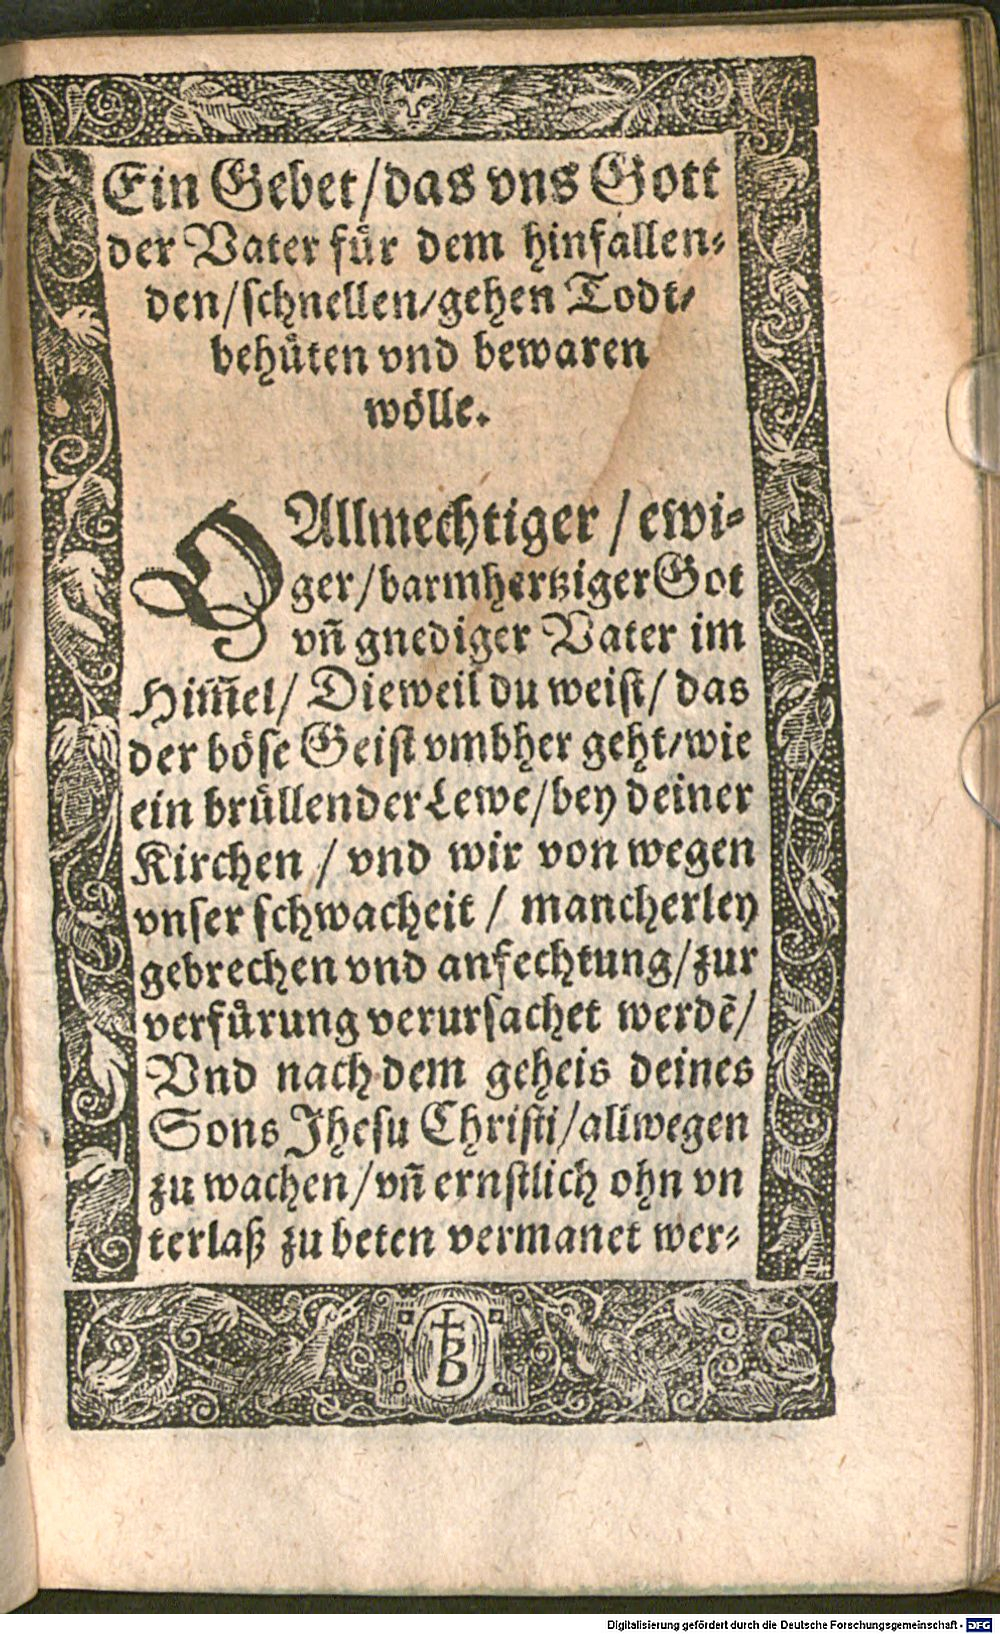 Ein Gebet/das vns Gott
der Vater fuͤr dem hinfallen⸗
den/schnellen/gehen Todt/
behuͤten vnd bewaren
woͤlle.
O Allmechtiger / ewi⸗
ger/barmhertziger Got
vñ gnediger Vater im
Him̃el/ Dieweil du weist/ das
der boͤse Geist vmbher geht/wie
ein bruͤllender Lewe/bey deiner
Kirchen / vnd wir von wegen
vnser schwacheit / mancherley
gebrechen vnd anfechtung/zur
verfuͤrung verursachet werdẽ/
Vnd nach dem geheis deines
Sons Jhesu Christi/allwegen
zu wachen/vñ ernstlich ohn vn
terlaß zu beten vermanet wer⸗
B
Digitalisierung gefördert durch die Deutsche Forschungsgemeinschaft - DFG